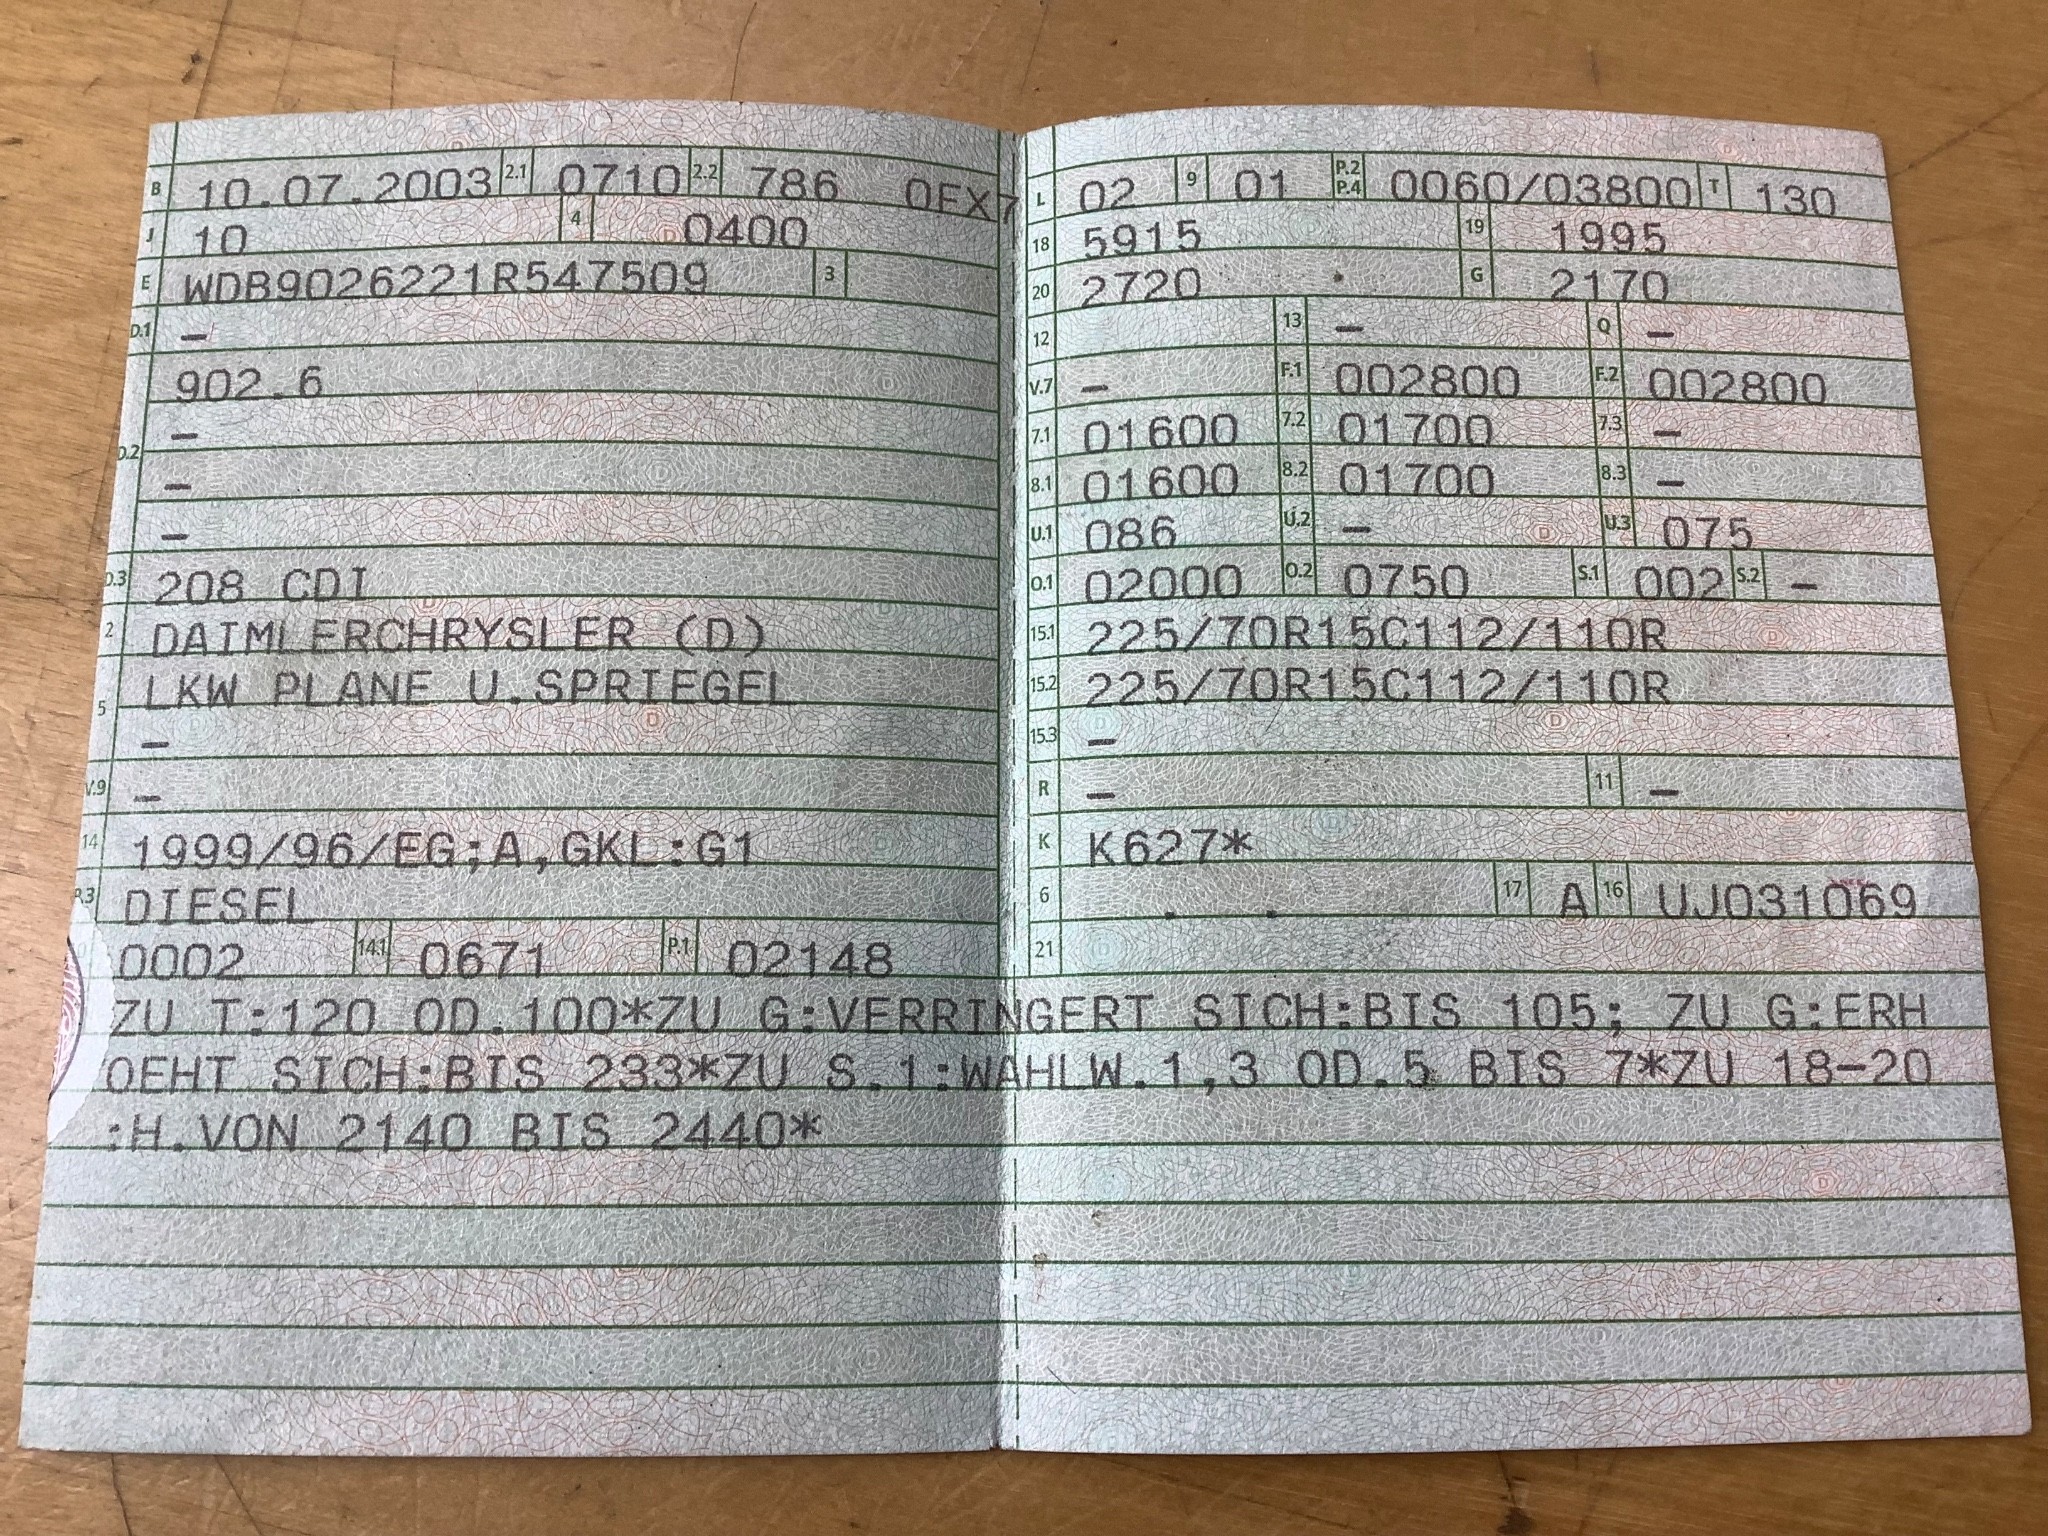 B 10.07.2003 2.1 0710 2.2 786 0FX7
J 10 4 0400
E WDB9026221R547509 3
D.1 –
902.6
D.2 –
–
–
D.3 208 CDI
2 DAIMLERCHRYSLER (D)
5 LKW PLANE U.SPRIEGEL
–
V.9 –
14 1999/96/EG;A,GKL:G1
P.3 DIESEL
0002 14.1 0671 P.1 02148
L 02 9 01 P.2 P.4 0060/03800 T 130
18 5915 19 1995
20 2720 G 2170
12 13 – Q –
V.7 – F.1 002800 F.2 002800
7.1 01600 7.2 01700 7.3 –
8.1 01600 8.2 01700 8.3 –
U.1 086 U.2 – U.3 075
O.1 02000 O.2 0750 S.1 002 S.2 –
15.1 225/70R15C112/110R
15.2 225/70R15C112/110R
15.3 –
R – 11 –
K K627*
6 . . 17 A 16 UJ031069
21
ZU T:120 OD.100*ZU G:VERRINGERT SICH:BIS 105; ZU G:ERH
OEHT SICH:BIS 233*ZU S.1:WAHLW.1,3 OD.5 BIS 7*ZU 18-20
:H.VON 2140 BIS 2440*